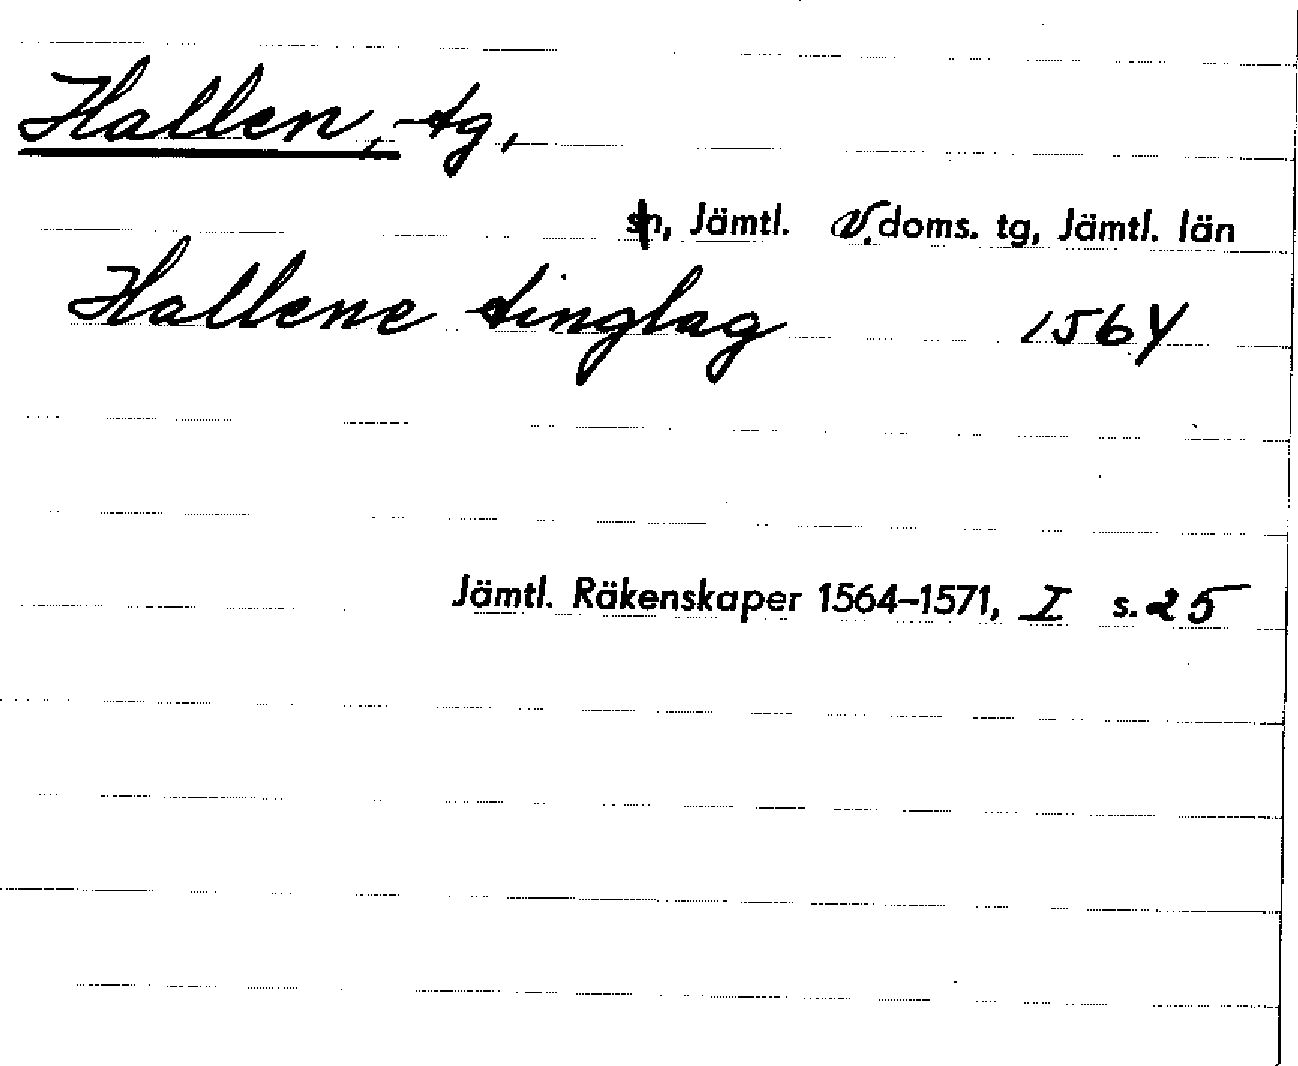 Hallen, tg,
sn, Jämtl. V. doms. tg, Jämtl. län
Hallene tinglag 1564
Jämtl. Räkenskaper 1564–1571, I s. 25